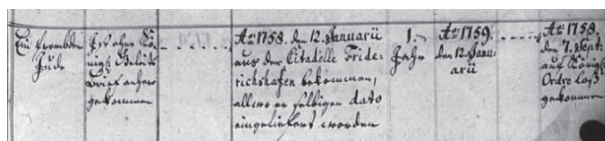 Ein frembder
Jude
Ist ohne Kö-
nigl: Geleits
Brief anhero
gekommen
Aō: 1758. den 12. Januarii
aus der Citadelle Fride-
richshafen bekommen,
allwo er selbigen dato
eingeliefert worden
1.
Jahr
Aō: 1759.
den 12. Janu-
arii
Aō: 1758.
den 7. Sept:
auf Königl:
Ordre loß
gekommen